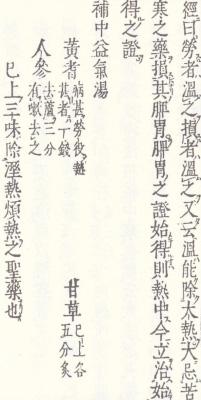 經曰勞者溫之損者溫之又云溫能除大熱大忌苦
寒之藥損其脾胃脾胃之證始得則熱中今立治始
得之證
補中益氣湯
黃耆 病甚勞役熱甚者一錢 甘草 已上各五分炙
人參 去蘆三分有嗽去之
已上三味除溼熱煩熱之聖藥也